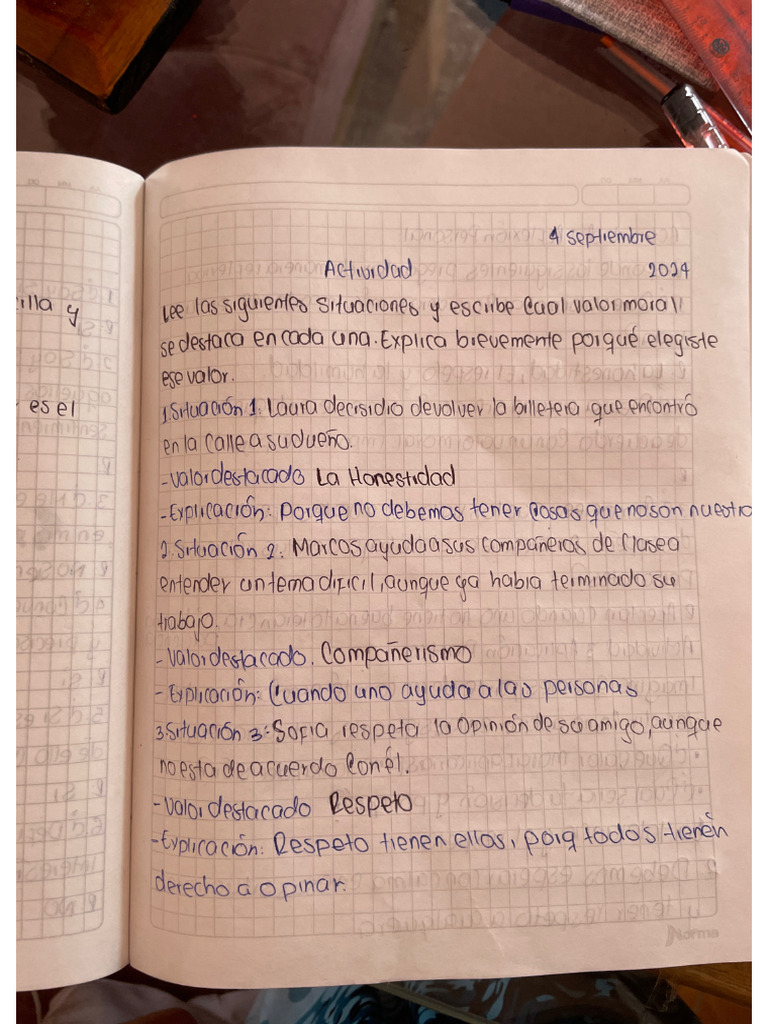 illa y
es el
4 septiembre
Actividad 2024
Lee las siguientes situaciones y escribe cual valor moral
se destaca en cada una. Explica brevemente porqué elegiste
ese valor.
1. Situación 1: Laura decisidio devolver la billetera que encontró
en la calle a su dueño.
- Valor destacado La Honestidad
- Explicación: Porque no debemos tener cosas que no son nuestro
2. Situación 2: Marcos ayuda a sus compañeros de clase a
entender un tema dificil, aunque ya habia terminado su
trabajo.
- Valor destacado. Compañerismo
- Explicación: Cuando uno ayuda a las personas
3. Situación 3: Sofia respeta la opinión de su amigo, aunque
no esta de acuerdo con él.
- Valor destacado Respeto
- Explicación: Respeto tienen ellos, porq todos tienen
derecho a opinar.
Norma